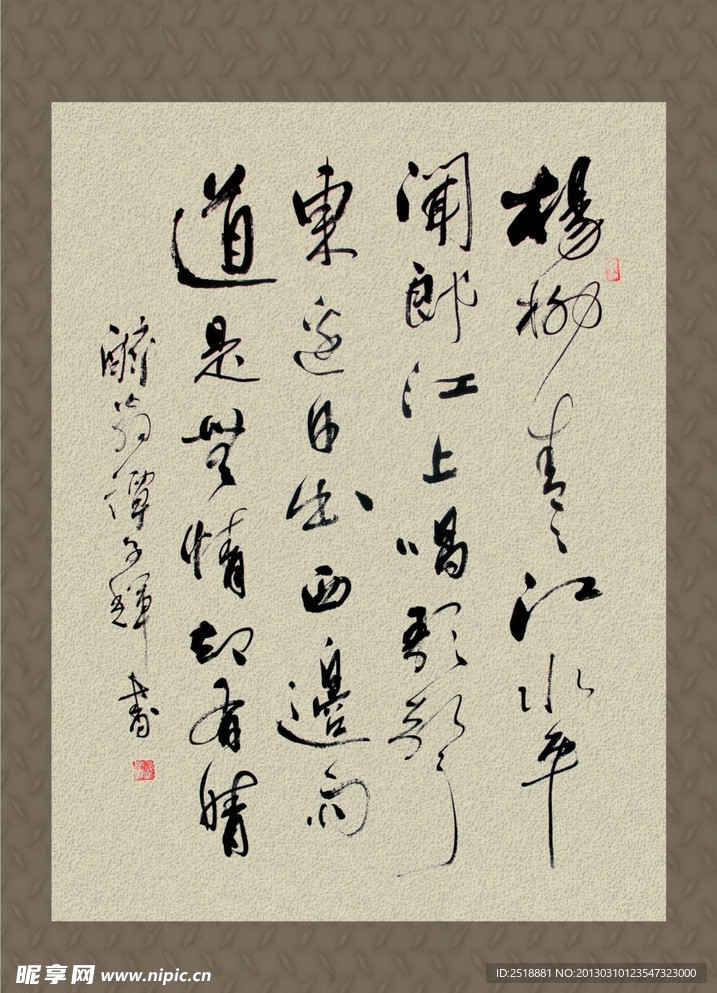 楊柳青々江水平
聞郎江上唱歌聲
東邊日出西邊雨
道是無情却有晴
翁譚子輝書
昵享网 www.nipic.cn
ID:2518881 NO:20130310123547323000